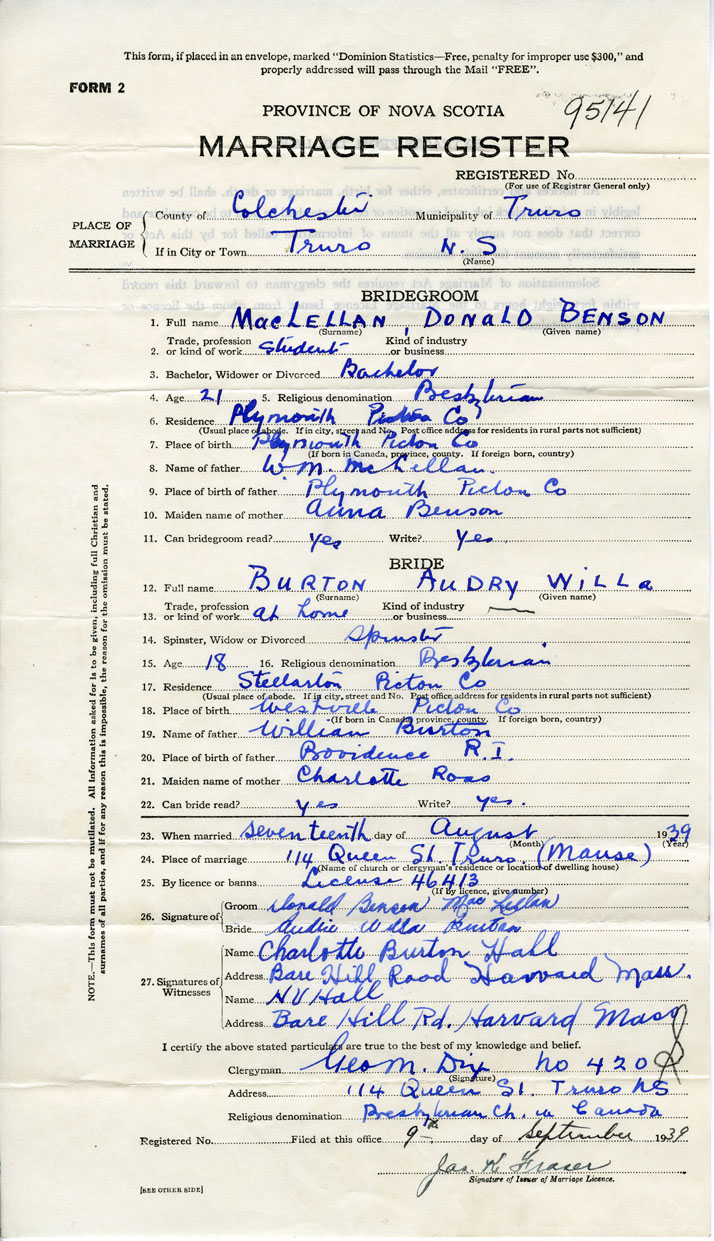 This form, if placed in an envelope, marked "Dominion Statistics—Free, penalty for improper use $300," and
properly addressed will pass through the Mail "FREE".
FORM 2
95141
PROVINCE OF NOVA SCOTIA
MARRIAGE REGISTER
REGISTERED No.
(For use of Registrar General only)
PLACE OF MARRIAGE
County of Colchester Municipality of Truro
If in City or Town Truro N. S
(Name)
BRIDEGROOM
1. Full name MacLELLAN, DONALD BENSON
(Surname) (Given name)
2. Trade, profession or kind of work student Kind of industry or business
3. Bachelor, Widower or Divorced Bachelor
4. Age 21 5. Religious denomination Presbyterian
6. Residence Plymouth Pictou Co
(Usual place of abode. If in city, street and No. Post office address for residents in rural parts not sufficient)
7. Place of birth Plymouth Pictou Co
(If born in Canada, province, county. If foreign born, country)
8. Name of father W.M. McLellan.
9. Place of birth of father Plymouth Pictou Co
10. Maiden name of mother Anna Benson
11. Can bridegroom read? yes Write? Yes
BRIDE
12. Full name BURTON AUDRY WILLA
(Surname) (Given name)
13. Trade, profession or kind of work at home Kind of industry or business —
14. Spinster, Widow or Divorced Spinster
15. Age 18 16. Religious denomination Presbyterian
17. Residence Stellarton Pictou Co
(Usual place of abode. If in city, street and No. Post office address for residents in rural parts not sufficient)
18. Place of birth Westville Pictou Co
(If born in Canada, province, county. If foreign born, country)
19. Name of father William Burton
20. Place of birth of father Providence R.I.
21. Maiden name of mother Charlotte Ross
22. Can bride read? yes Write? yes.
23. When married seventeenth day of August 1939
(Month) (Year)
24. Place of marriage 114 Queen St. Truro. (Manse)
(Name of church or clergyman's residence or location of dwelling house)
25. By licence or banns License 46413
(If by licence, give number)
26. Signature of
Groom Donald Benson MacLellan
Bride Audrie Willa Burton
27. Signatures of Witnesses
Name Charlotte Burton Hall
Address Bare Hill Road Harvard Mass.
Name H V Hall
Address Bare Hill Rd. Harvard Mass
I certify the above stated particulars are true to the best of my knowledge and belief.
Clergyman Geo M. Dix No 420
(Signature)
Address 114 Queen St. Truro NS
Religious denomination Presbyterian Ch. in Canada
Registered No. Filed at this office 9th day of September 1939
Jas. K Fraser
Signature of Issuer of Marriage Licence.
[SEE OTHER SIDE]
NOTE.—This form must not be mutilated. All Information asked for is to be given, including full Christian and
surnames of all parties, and if for any reason this is impossible, the reason for the omission must be stated.